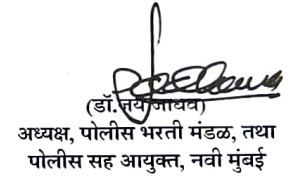 (डॉ. जय जाधव)
अध्यक्ष, पोलीस भरती मंडळ, तथा
पोलीस सह आयुक्त, नवी मुंबई